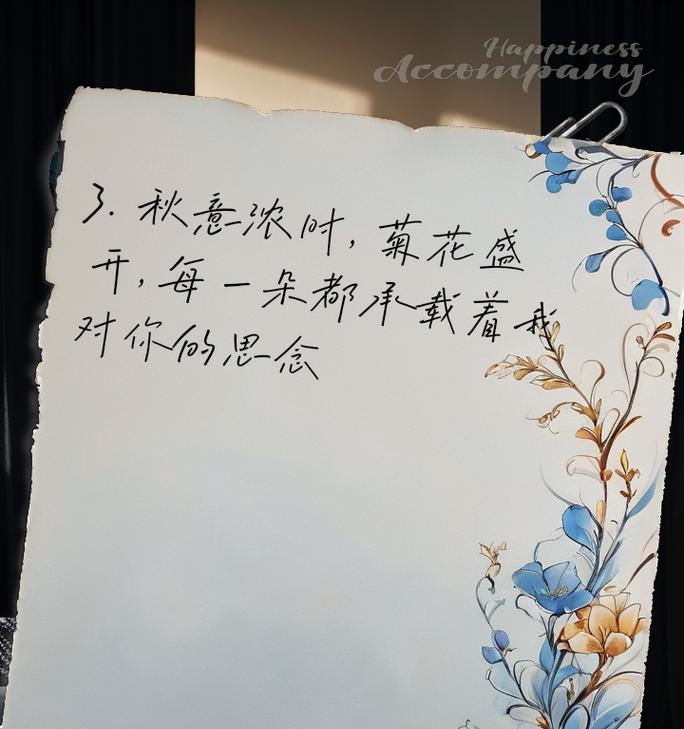 Happiness
Accompany
3. 秋意浓时，菊花盛
开，每一朵都承载着我
对你的思念